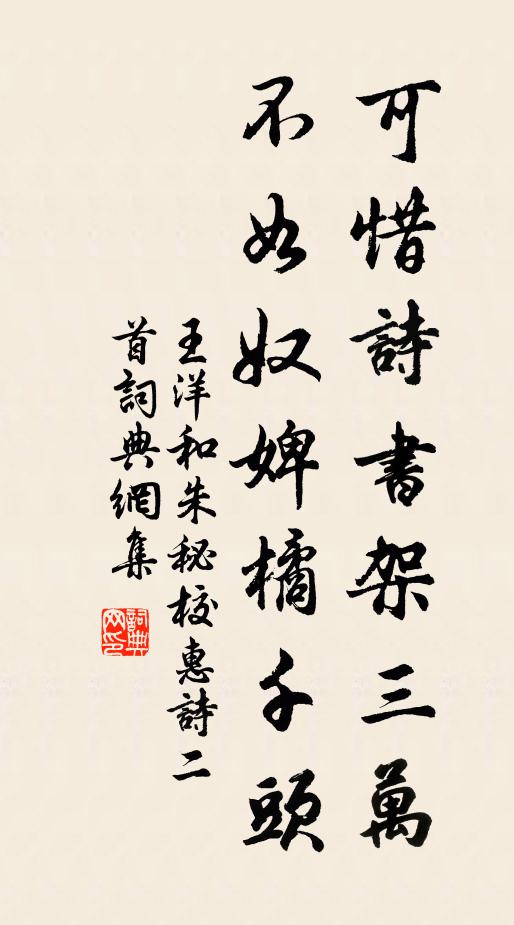 可惜詩書架三萬
不如奴婢橘千頭
王洋和朱秘校惠詩二
首詞典網集
詞典網印